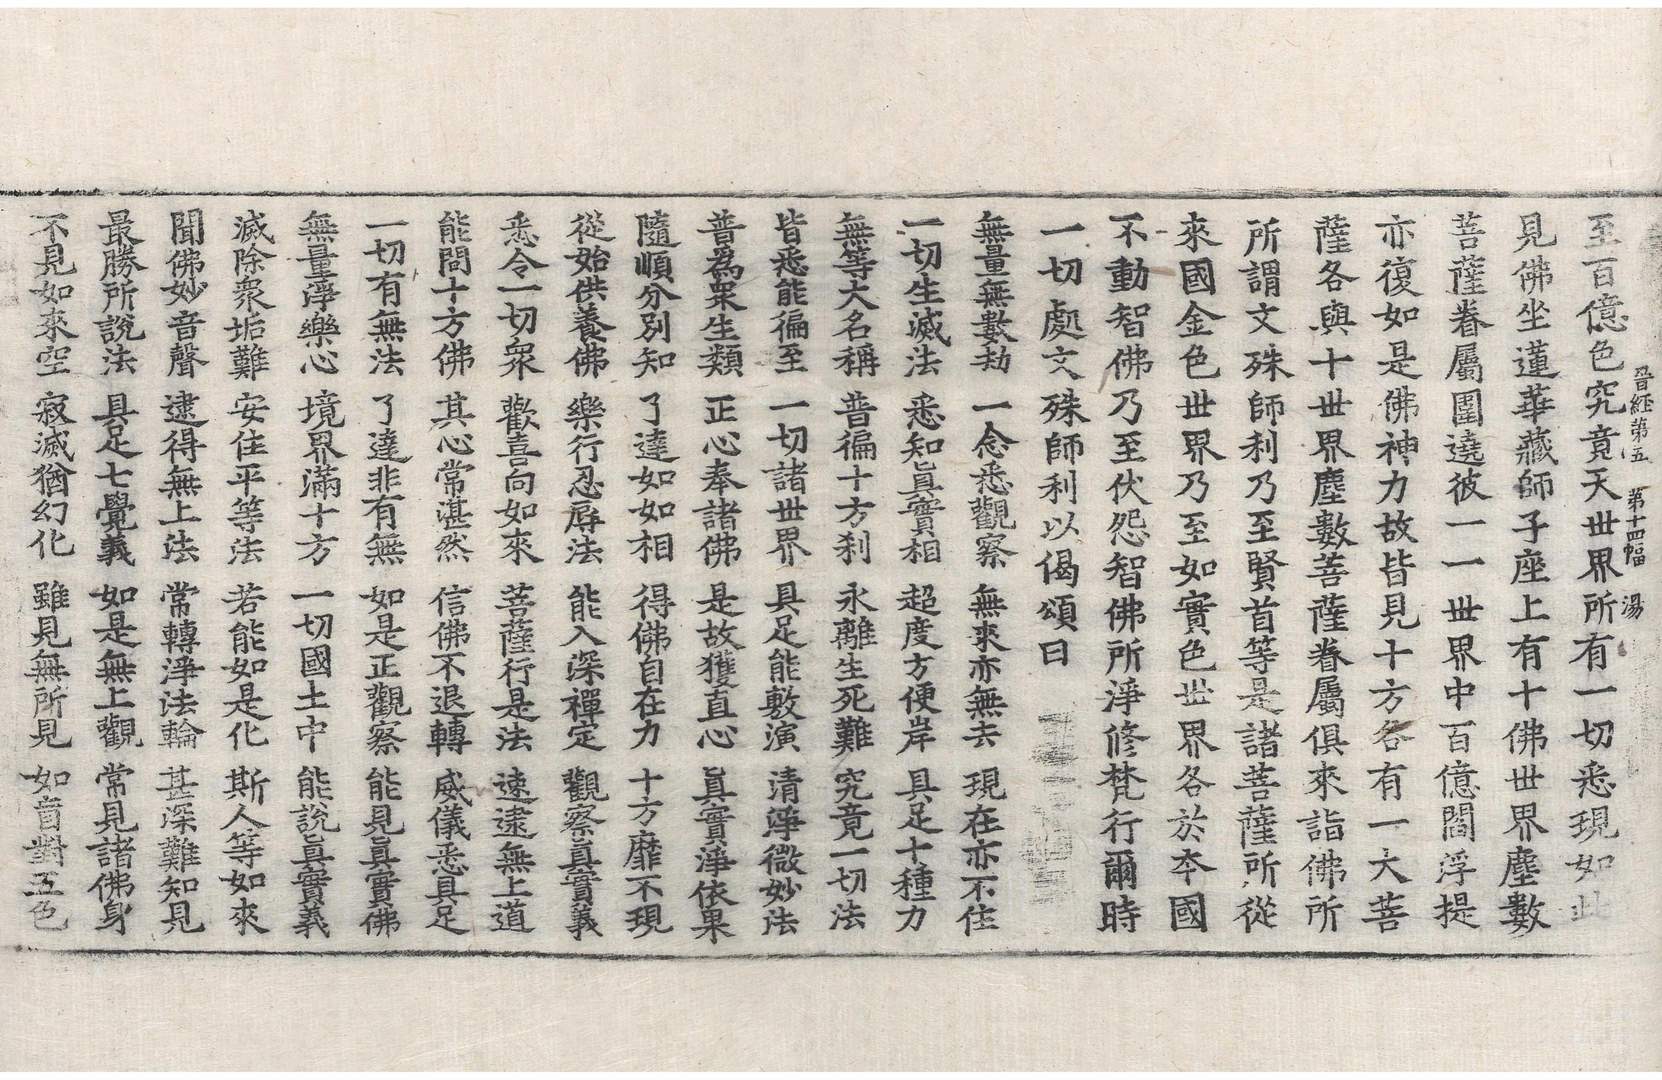 至百億色究竟天世界所有一切悉現如此
晉經第五 第十四幅 湯
見佛坐蓮華藏師子座上有十佛世界塵數
菩薩眷屬圍遶彼一一世界中百億閻浮提
亦復如是佛神力故皆見十方各有一大菩
薩各與十世界塵數菩薩眷屬俱來詣佛所
所謂文殊師利乃至賢首等是諸菩薩所從
來國金色世界乃至如實色世界各於本國
不動智佛乃至伏怨智佛所淨修梵行爾時
一切處文殊師利以偈頌曰
無量無數劫 一念悉觀察 無來亦無去 現在亦不住
一切生滅法 悉知眞實相 超度方便岸 具足十種力
無等大名稱 普徧十方刹 永離生死難 究竟一切法
皆悉能徧至 一切諸世界 具足能敷演 清淨微妙法
普爲衆生類 正心奉諸佛 是故獲直心 眞實淨依果
隨順分別知 了達如如相 得佛自在力 十方靡不現
從始供養佛 樂行忍辱法 能入深禪定 觀察眞實義
悉令一切衆 歡喜向如來 菩薩行是法 速逮無上道
能問十方佛 其心常湛然 信佛不退轉 威儀悉具足
一切有無法 了達非有無 如是正觀察 能見眞實佛
無量淨樂心 境界滿十方 一切國土中 能說眞實義
滅除衆垢難 安住平等法 若能如是化 斯人等如來
聞佛妙音聲 逮得無上法 常轉淨法輪 甚深難知見
最勝所說法 具足七覺義 如是無上觀 常見諸佛身
不見如來空 寂滅猶幻化 雖見無所見 如盲對五色